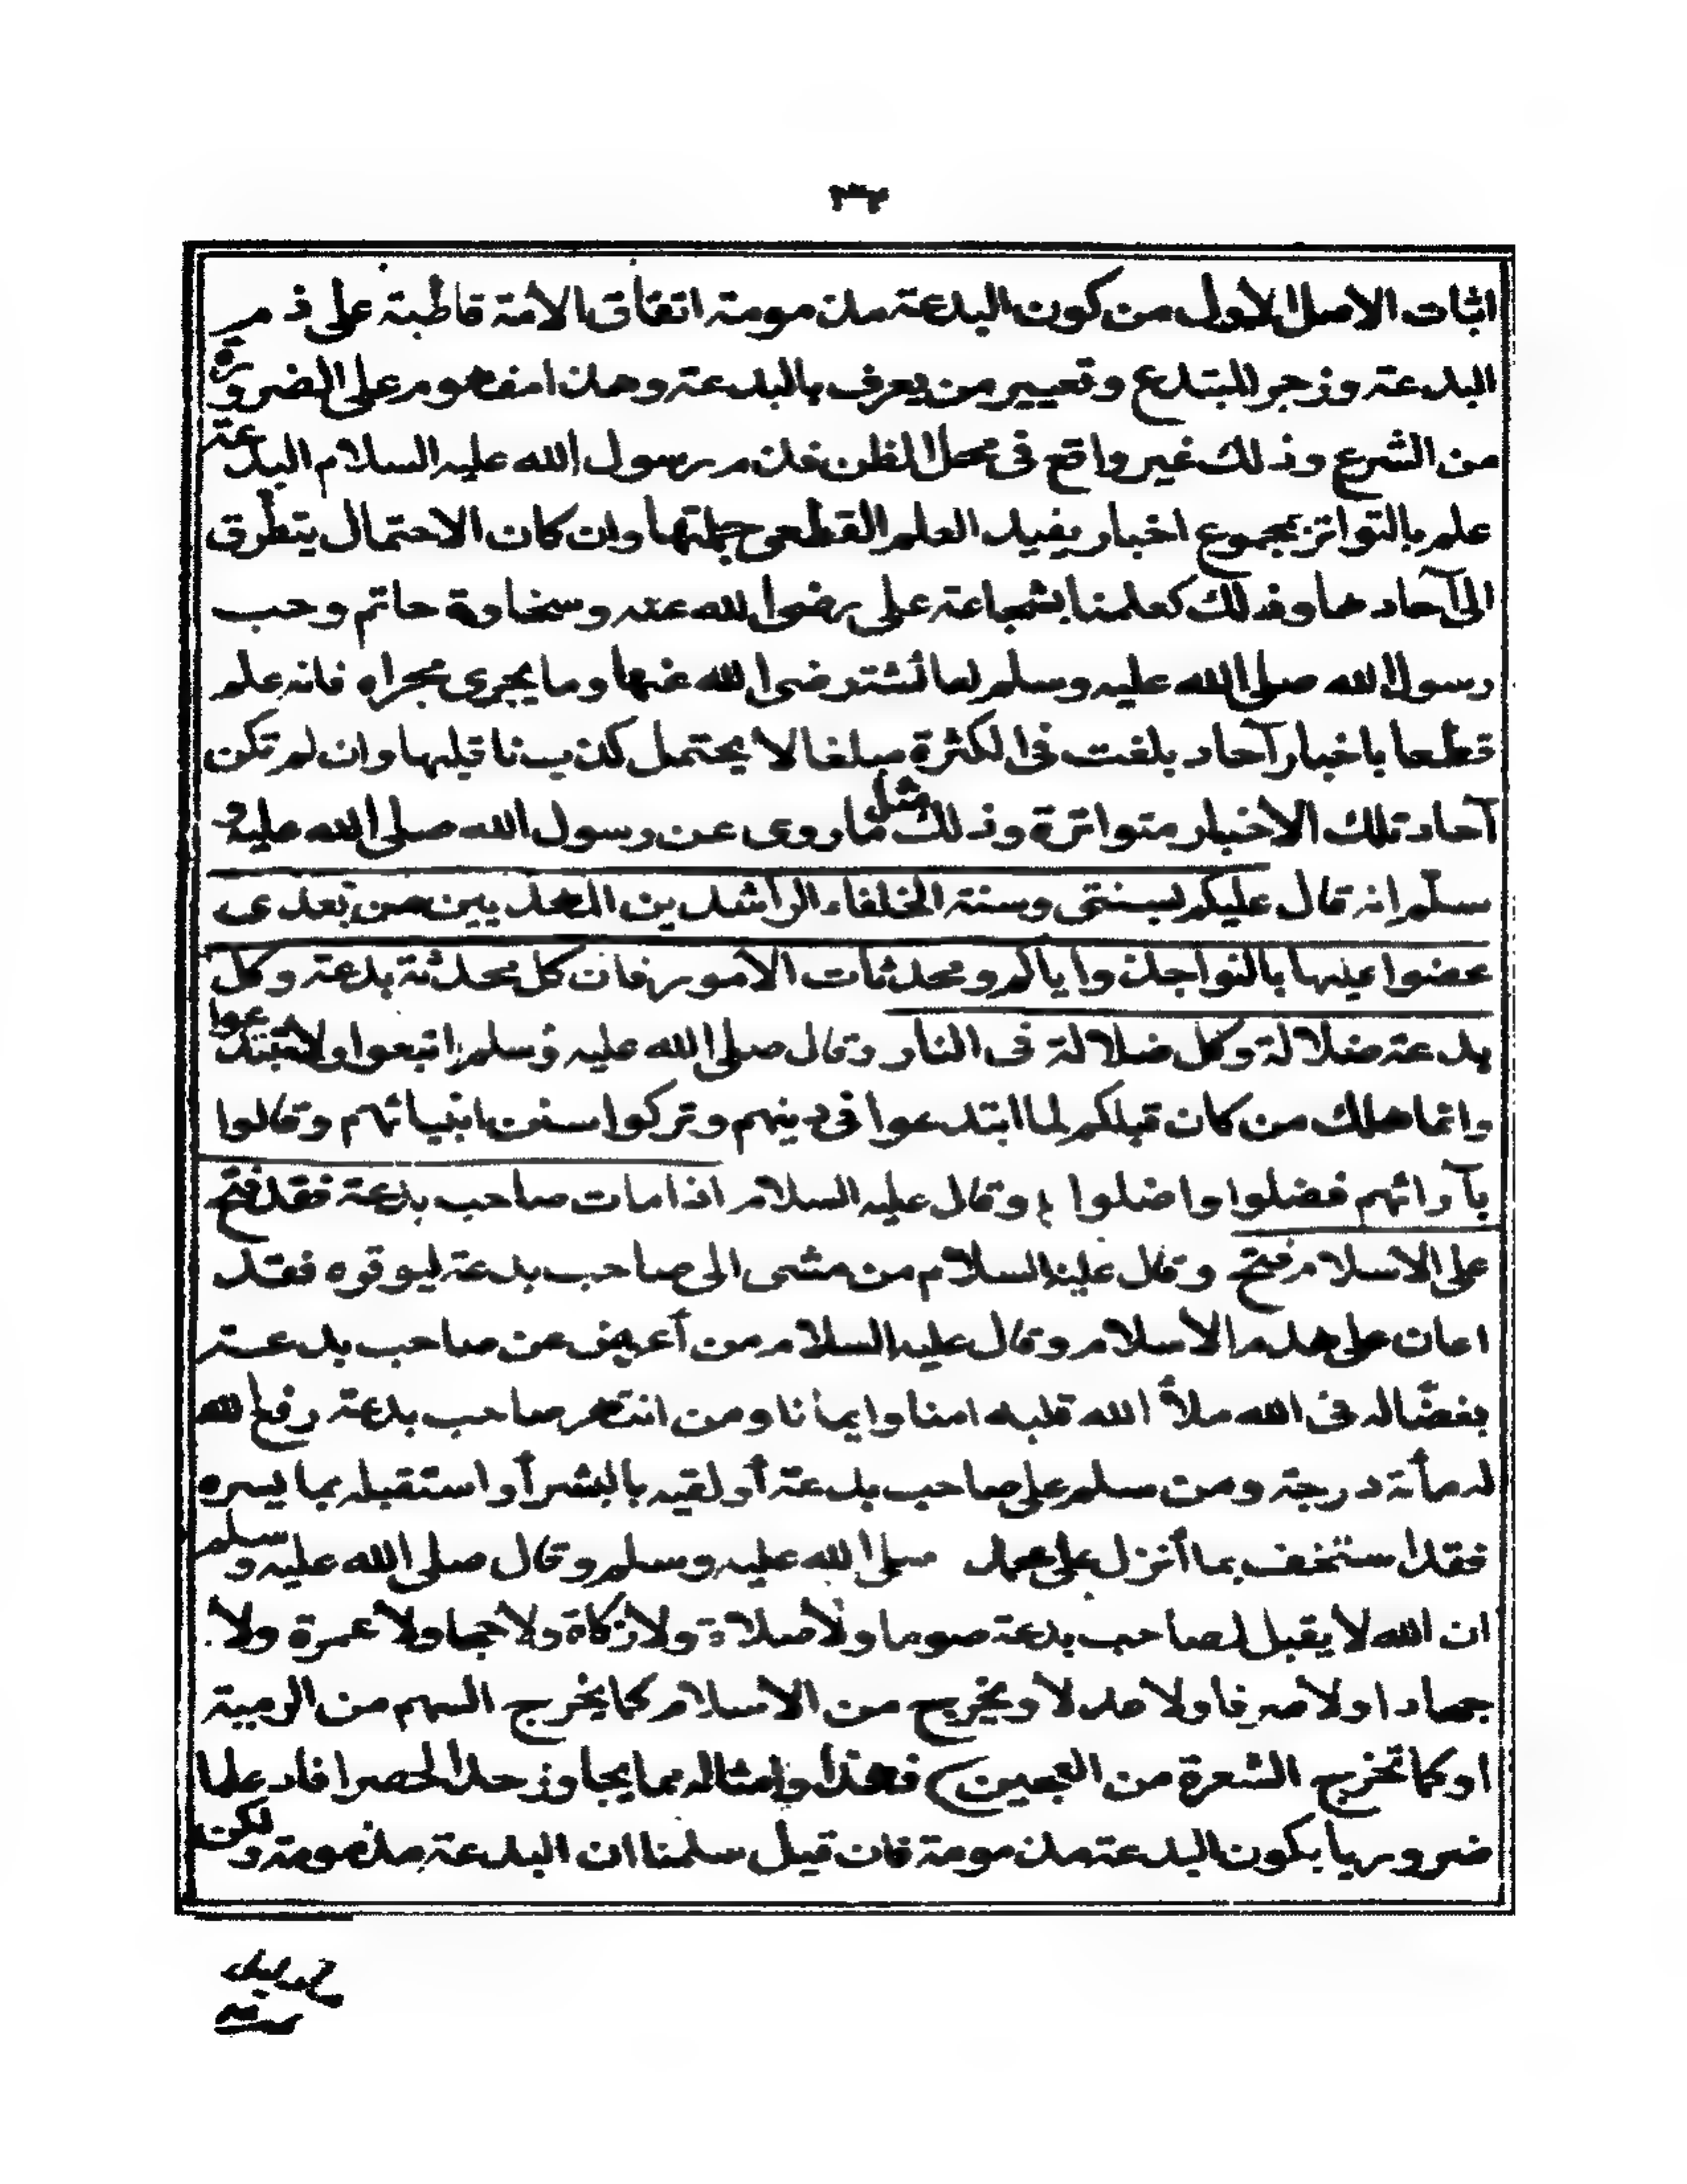 ٣٣
اثبات الاصل الاول من كون البدعة مذمومة اتفاق الأمة قاطبة على ذم
البدعة وزجر المبتدع وتعيير من يعرف بالبدعة وهذا مفهوم على الضرورة
من الشرع وذلك غير واقع فى محل الظن فذم رسول الله عليه السلام البدعة
علم بالتواتر بمجموع اخبار يفيد العلم القطعى جملتها وان كان الاحتمال يتطرق
الى آحادها وذلك كعلمنا بشجاعة على رضى الله عنه وسخاوة حاتم وحب
رسول الله صلى الله عليه وسلم لعائشة رضى الله عنها وما يجرى مجراه فانه علم
قطعا باخبار آحاد بلغت فى الكثرة مبلغا لا يحتمل كذب ناقليها وان لم تكن
آحاد تلك الاخبار متواترة وذلك مثل ما روى عن رسول الله صلى الله عليه و
سلم انه قال عليكم بسنتى وسنة الخلفاء الراشدين المهديين من بعدى
عضوا عليها بالنواجذ واياكم ومحدثات الأمور فان كل محدثة بدعة وكل
بدعة ضلالة وكل ضلالة فى النار وقال صلى الله عليه وسلم اتبعوا ولا تبتدعوا
وانما هلك من كان قبلكم لما ابتدعوا فى دينهم وتركوا سنن انبيائهم وقالوا
بآرائهم فضلوا واضلوا وقال عليه السلام اذا مات صاحب بدعة فقد فتح
على الاسلام فتح وقال عليه السلام من مشى الى صاحب بدعة ليوقره فقد
اعان على هدم الاسلام وقال عليه السلام من أعرض عن صاحب بدعة
بغضًا له فى الله ملأ الله قلبه امنا وايمانا ومن انتهر صاحب بدعة رفع الله
له مأئة درجة ومن سلم على صاحب بدعة أو لقيه بالبشر أو استقبله بما يسره
فقد استخف بما أنزل على محمد صلى الله عليه وسلم وقال صلى الله عليه وسلم
ان الله لا يقبل لصاحب بدعة صوما ولا صلاة ولا زكاة ولا حجا ولا عمرة ولا
جهادا ولا صرفا ولا عدلا ويخرج من الاسلام كما يخرج السهم من الرمية
او كما تخرج الشعرة من العجين فهذا وامثاله مما يجاوز حد الحصر افاد علما
ضروريا بكون البدعة مذمومة فان قيل سلمنا ان البدعة مذمومة ولكن